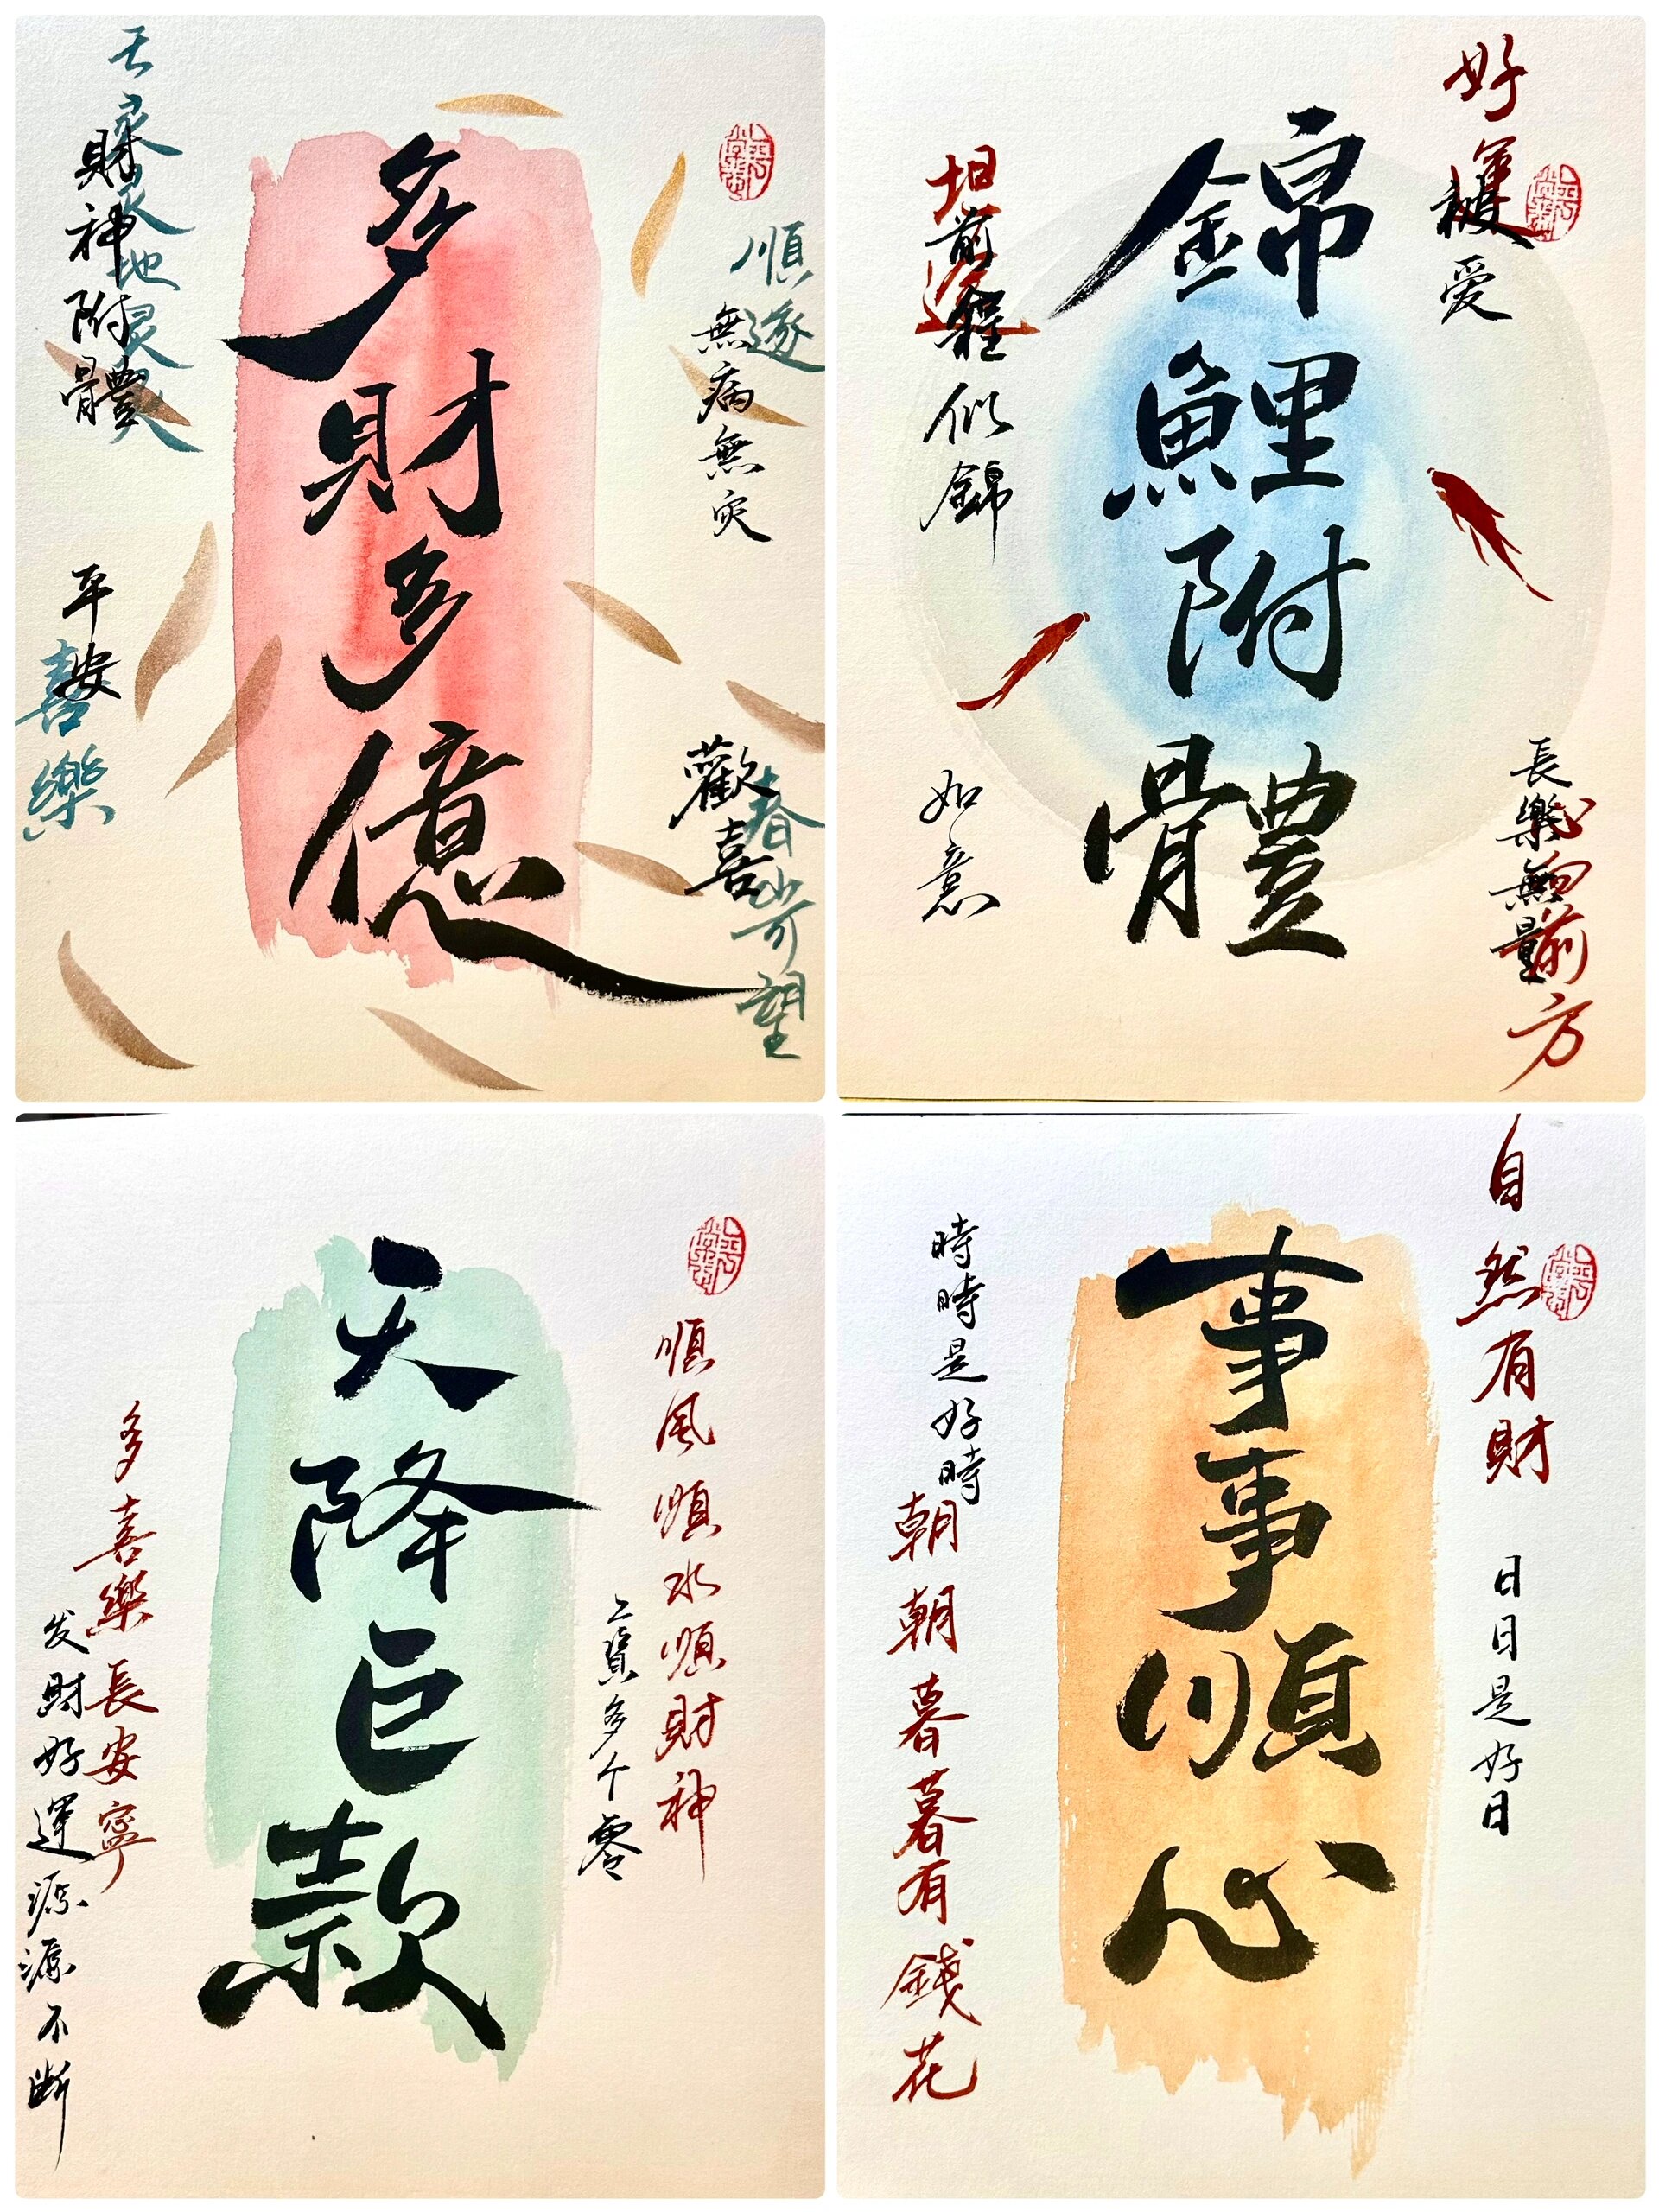 多財多億
順遂
無病無災
歡喜
春山可望
財神附體
平安
喜樂
錦鯉附體
好運
爱
長樂無量
前方
坦途
前程似錦
如意
天降巨款
順風順水順財神
工資多个零
多喜樂長安寧
发財好運源源不断
事事順心
自然有財
日日是好日
時時是好時
朝朝暮暮有錢花